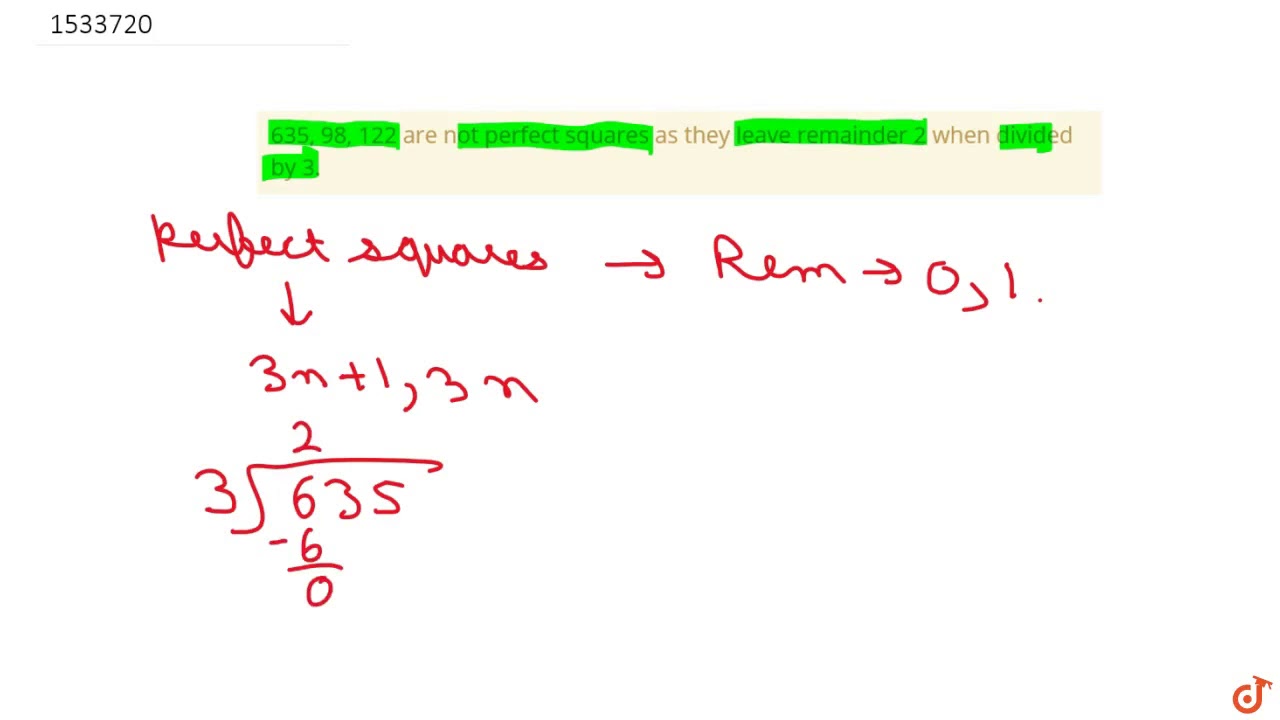 1533720
635, 98, 122 are not perfect squares as they leave remainder 2 when divided
by 3.
Perfect squares → Rem → 0, 1.
↓
3n+1, 3n
2
3 635
-6
0